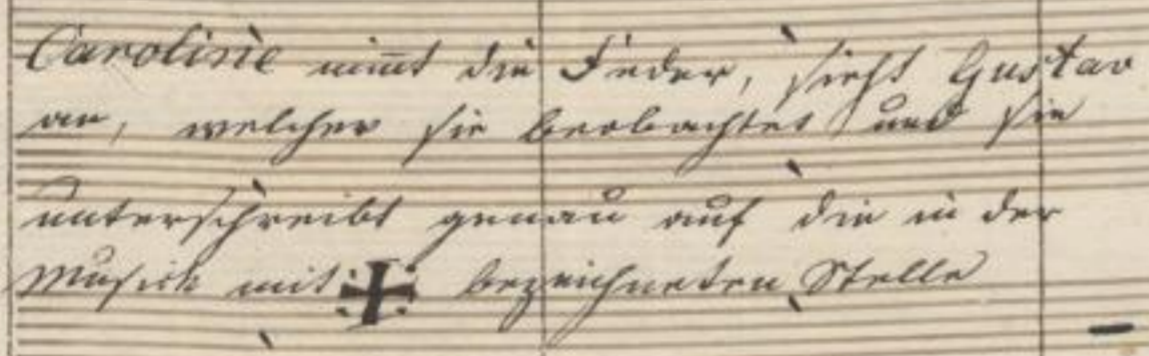 Caroline nim̅t die Feder, sieht Gustav
an, welcher sie beobachtet und sie
unterschreibt genau auf die in der
Musick mit ✠ bezeichneten Stelle